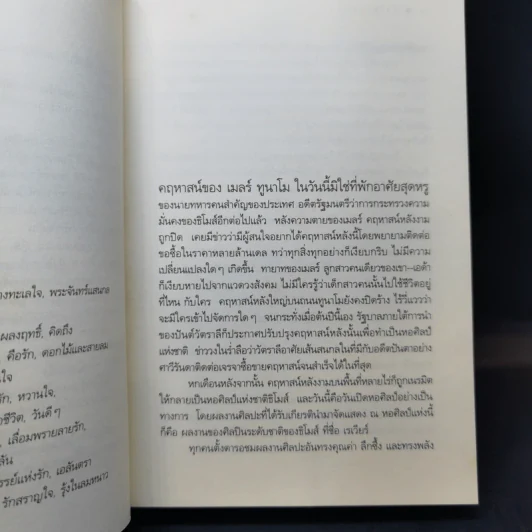 งทะเลใจ, พระจันทร์แสนกล
ผลงฤทธิ์, คิดถึง
คือรัก, ดอกไม้และสายลม
นใจ
รัก, หวานใจ,
าชีวิต, วันดีๆ
, เลื่อมพรายลายรัก,
ลัน
รรย์แห่งรัก, เอลันตรา
รักสราญใจ, รุ้งในลมหนาว
คฤหาสน์ของ เมลร์ ทูนาโม ในวันนี้มิใช่ที่พักอาศัยสุดหรู
ของนายทหารคนสำคัญของประเทศ อดีตรัฐมนตรีว่าการกระทรวงความ
มั่นคงของธิโมส์อีกต่อไปแล้ว หลังความตายของเมลร์ คฤหาสน์หลังงาม
ถูกปิด เคยมีข่าวว่ามีผู้สนใจอยากได้คฤหาสน์หลังนี้โดยพยายามติดต่อ
ขอซื้อในราคาหลายล้านเดล ทว่าทุกสิ่งทุกอย่างก็เงียบกริบ ไม่มีความ
เปลี่ยนแปลงใดๆ เกิดขึ้น ทายาทของเมลร์ ลูกสาวคนเดียวของเขา–เอด้า
ก็เงียบหายไปจากแวดวงสังคม ไม่มีใครรู้ว่าเด็กสาวคนนั้นไปใช้ชีวิตอยู่
ที่ไหน กับใคร คฤหาสน์หลังใหญ่บนถนนทูนาโมยังคงปิดร้าง ไร้วี่แววว่า
จะมีใครเข้าไปจัดการใดๆ จนกระทั่งเมื่อต้นปีนี้เอง รัฐบาลภายใต้การนำ
ของปันต์วัตราลีก็ประกาศปรับปรุงคฤหาสน์หลังนั้นเพื่อทำเป็นหอศิลป์
แห่งชาติ ข่าววงในร่ำลือว่าวัตราลีอาศัยเส้นสนกลในที่มีกับอดีตปันตาอย่าง
ศาวีรันดาติดต่อเจรจาซื้อขายคฤหาสน์จนสำเร็จได้ในที่สุด
หกเดือนหลังจากนั้น คฤหาสน์หลังงามบนพื้นที่หลายไร่ก็ถูกเนรมิต
ให้กลายเป็นหอศิลป์แห่งชาติธิโมส์ และวันนี้คือวันเปิดหอศิลป์อย่างเป็น
ทางการ โดยผลงานศิลปะที่ได้รับเกียรตินำมาจัดแสดง ณ หอศิลป์แห่งนี้
ก็คือ ผลงานของศิลปินระดับชาติของธิโมส์ ที่ชื่อ เรเวียร์
ทุกคนตั้งตารอชมผลงานศิลปะอันทรงคุณค่า ลึกซึ้ง และทรงพลัง